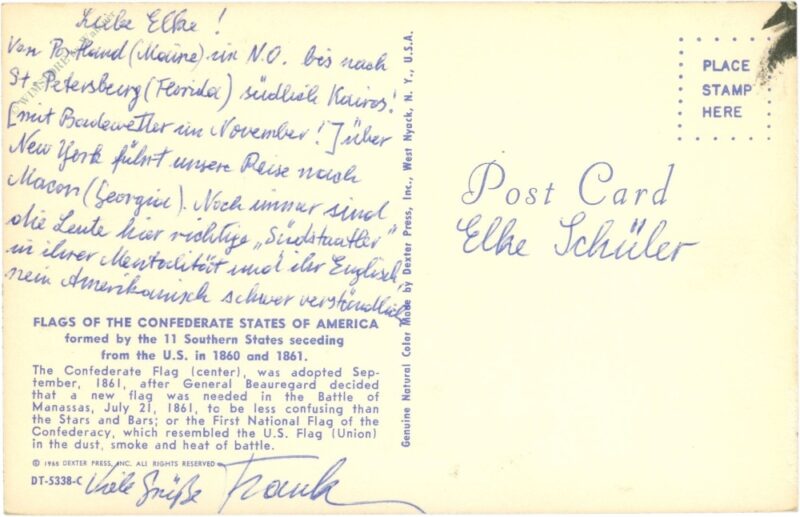 Liebe Elke!
Von Portland (Maine) im N.O. bis nach
St. Petersburg (Florida) südlich Kairos!
[mit Badewetter im November!] über
New York führt unsere Reise nach
Macon (Georgia). Noch immer sind
die Leute hier richtige „Südstaatler"
in ihrer Mentalität und ihr Englisch,
nein Amerikanisch schwer verständlich.
FLAGS OF THE CONFEDERATE STATES OF AMERICA
formed by the 11 Southern States seceding
from the U.S. in 1860 and 1861.
The Confederate Flag (center), was adopted Sep-
tember, 1861, after General Beauregard decided
that a new flag was needed in the Battle of
Manassas, July 21, 1861, to be less confusing than
the Stars and Bars; or the First National Flag of the
Confederacy, which resembled the U.S. Flag (Union)
in the dust, smoke and heat of battle.
© 1965 DEXTER PRESS, INC. ALL RIGHTS RESERVED
DT-5338-C
Viele Grüße Frank
Genuine Natural Color Made by Dexter Press, Inc., West Nyack, N. Y., U.S.A.
PLACE
STAMP
HERE
Post Card
Elke Schüler